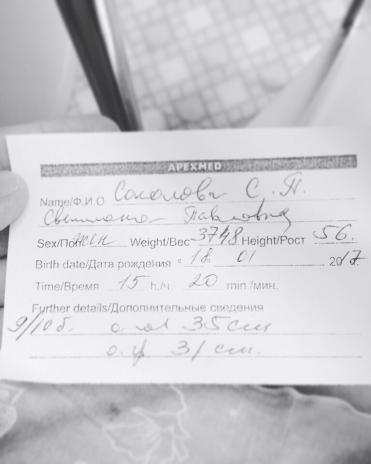 APEXMED
Name/Ф.И.О Соколова С. П.
Светлана Павловна
Sex/Пол жен Weight/Вес 3748 Height/Рост 56.
Birth date/Дата рождения « 18 01 2017.
Time/Время 15 h./ч 20 min./мин.
Further details/Дополнительные сведения
9/10 б. о. гол 35 см
о. гр 31 см.